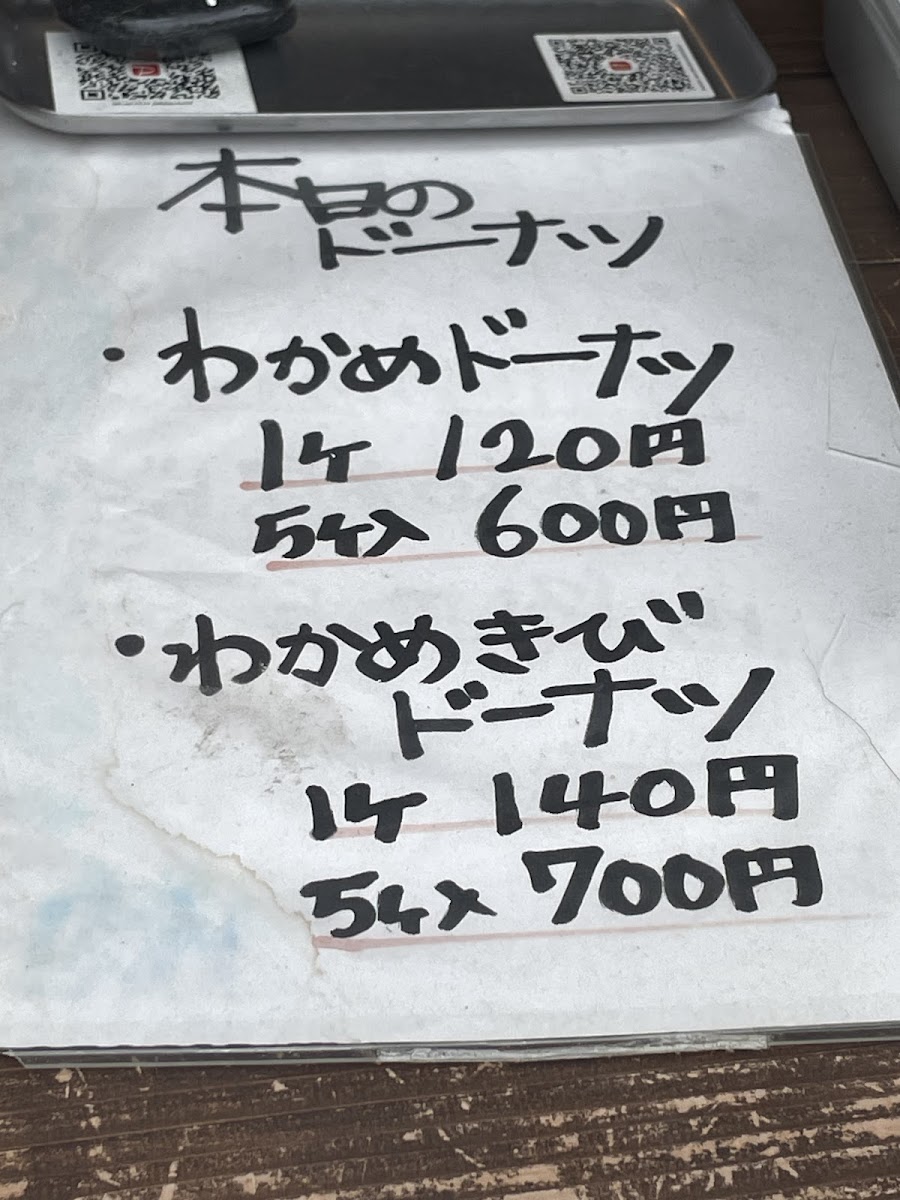 本日の
ドーナツ
・わかめドーナツ
1ケ 120円
5ケ入 600円
・わかめきび
ドーナツ
1ケ 140円
5ケ入 700円